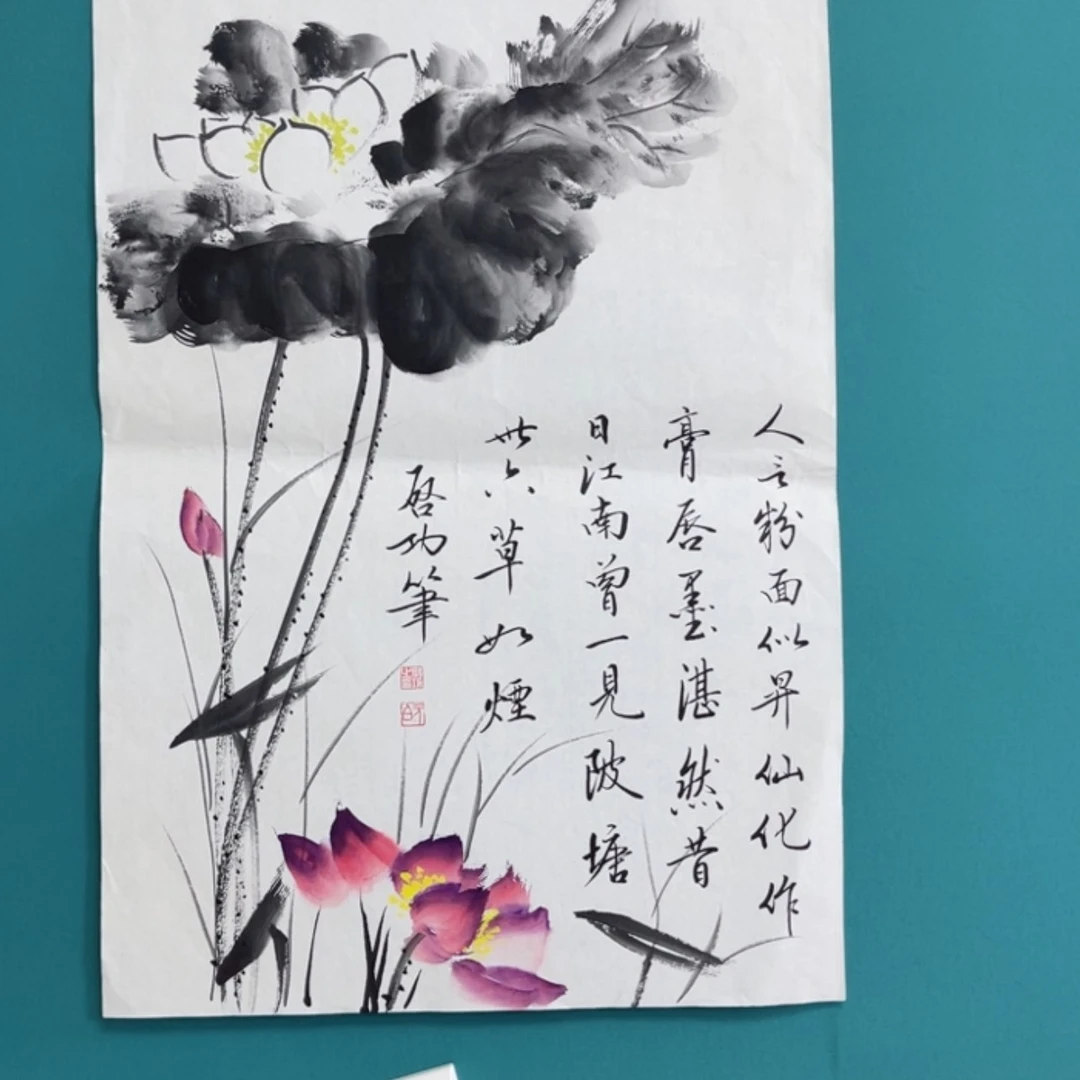 人言粉面似昇仙化作
膏唇墨湛然昔
日江南曾一見陂塘
卅六草如煙
啓功筆